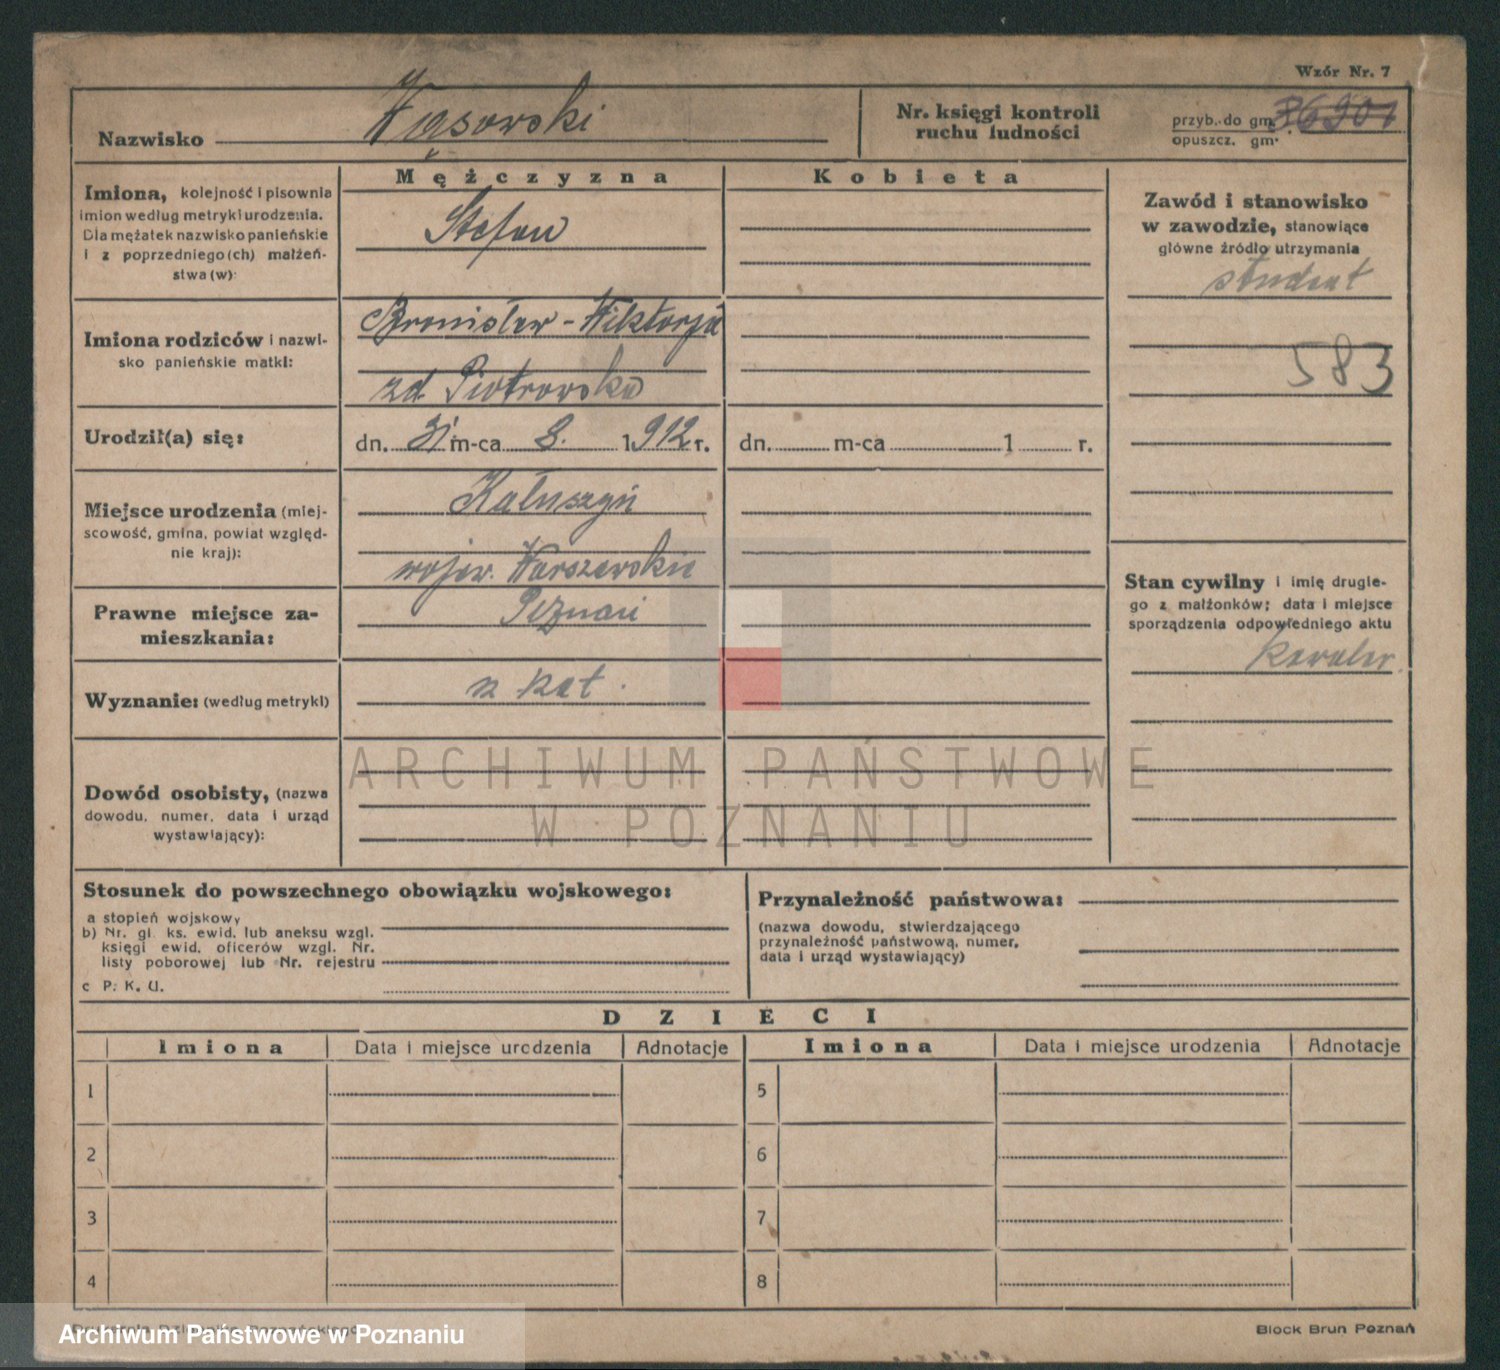 Wzór Nr. 7
Nazwisko Wąsowski
Nr. księgi kontroli
ruchu ludności
przyb. do gm. 36901
opuszcz. gm.
Mężczyzna
Kobieta
Imiona, kolejność i pisownia
imion według metryki urodzenia.
Dla mężatek nazwisko panieńskie
i z poprzedniego (ch) małżeń-
stwa (w):
Stefan
Zawód i stanowisko
w zawodzie, stanowiące
główne źródło utrzymania
student
583
Imiona rodziców i nazwi-
sko panieńskie matki:
Bronisław - Wiktorja
zd. Piotrowska
Urodził(a) się:
dn. 31 m-ca 8. 1912 r.
dn. m-ca 1 r.
Miejsce urodzenia (miej-
scowość, gmina, powiat względ-
nie kraj):
Kałuszyń
wojew. Warszawskie
Stan cywilny i imię drugie-
go z małżonków; data i miejsce
sporządzenia odpowiedniego aktu
kawaler.
Prawne miejsce za-
mieszkania:
Poznań
Wyznanie: (według metryki)
rz kat.
Dowód osobisty, (nazwa
dowodu, numer, data i urząd
wystawiający):
ARCHIWUM PAŃSTWOWE
W POZNANIU
Stosunek do powszechnego obowiązku wojskowego:
a stopień wojskowy
b) Nr. gl. ks. ewid. lub aneksu wzgl.
księgi ewid. oficerów wzgl. Nr.
listy poborowej lub Nr. rejestru
c P. K. U.
Przynależność państwowa:
(nazwa dowodu, stwierdzającego
przynależność państwową, numer,
data i urząd wystawiający)
DZIECI
Imiona Data i miejsce urodzenia Adnotacje Imiona Data i miejsce urodzenia Adnotacje
1 5
2 6
3 7
4 8
Archiwum Państwowe w Poznaniu
Block Brun Poznań